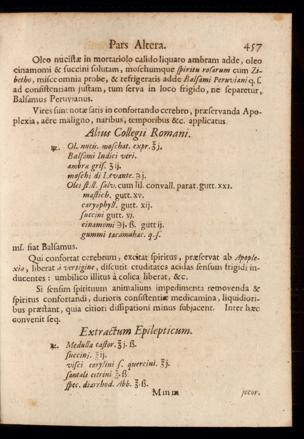 Pars Altera. 457
Oleo nucistæ in mortariolo calido liquato ambram adde, oleo
cinamomi & succini solutam, moschumque spiritu rosarum cum Zi-
betho, misce omnia probe, & refrigeratis adde Balsami Peruviani q. s.
ad consistentiam justam, tum serva in loco frigido, ne separetur,
Balsamus Peruvianus.
Vires sunt notæ satis in confortando cerebro, præservanda Apo-
plexia, aëre maligno, naribus, temporibus &c. applicatus.
Alius Collegii Romani.
℞. Ol. nucis. moschat. expr. ℥j.
Balsami Indici veri.
ambræ gris. ℥ij.
moschi di Levante. ℈j.
Olei st. ill. salv. cum lil. convall. parat. gutt. xxi.
mastich. gutt. xv.
caryophyll. gutt. xij.
succini gutt. vj.
cinamomi ℈ij. ß. gutt ij.
gummi tacamahac. q. s.
ms. fiat Balsamus.
Qui confortat cerebrum, excitat spiritus, præservat ab Apople-
xia, liberat à vertigine, discutit cruditates acidas sensum frigidi in-
ducentes: umbilico illitus à colica liberat, &c.
Si sensim spirituum animalium impedimenta removenda &
spiritus confortandi, durioris consistentiæ medicamina, liquidiori-
bus præstant, quia citiori dissipationi minus subjacent. Inter hæc
convenit seq.
Extractum Epilepticum.
℞. Medulla castor. ℥j. ß.
succinj. ℥ij.
visci corylini s. quercini. ℥j.
santali citrini ℥. ß.
spec. diarrhod. Abb. ℥. ß.
Mmm jecor.